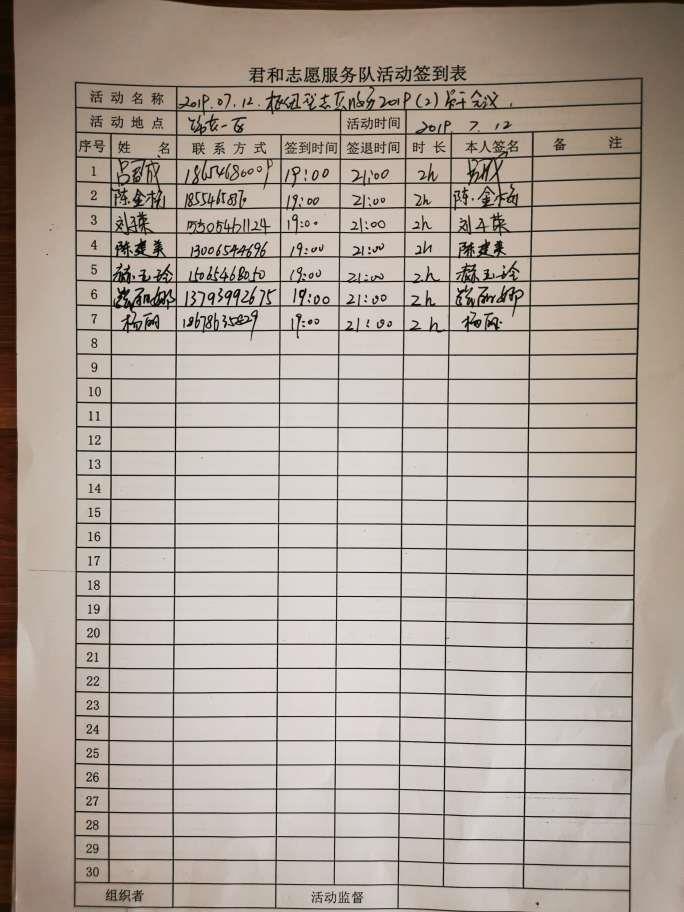 君和志愿服务队活动签到表
活动名称 2019.07.12. 2019(2) 会议
活动地点 活动时间 2019. 7. 12
序号 姓名 联系方式 签到时间 签退时间 时长 本人签名 备注
1 18654686009 19:00 21:00 2h
2 陈金梅 19:00 21:00 2h 陈金梅
3 刘子荣 19:00 21:00 2h 刘子荣
4 陈建美 13006544696 19:00 21:00 2h 陈建美
5 赫玉玲 15065468050 19:00 21:00 2h 赫玉玲
6 13793992675 19:00 21:00 2h
7 杨丽 19:00 21:00 2h 杨丽
8
9
10
11
12
13
14
15
16
17
18
19
20
21
22
23
24
25
26
27
28
29
30
组织者 活动监督